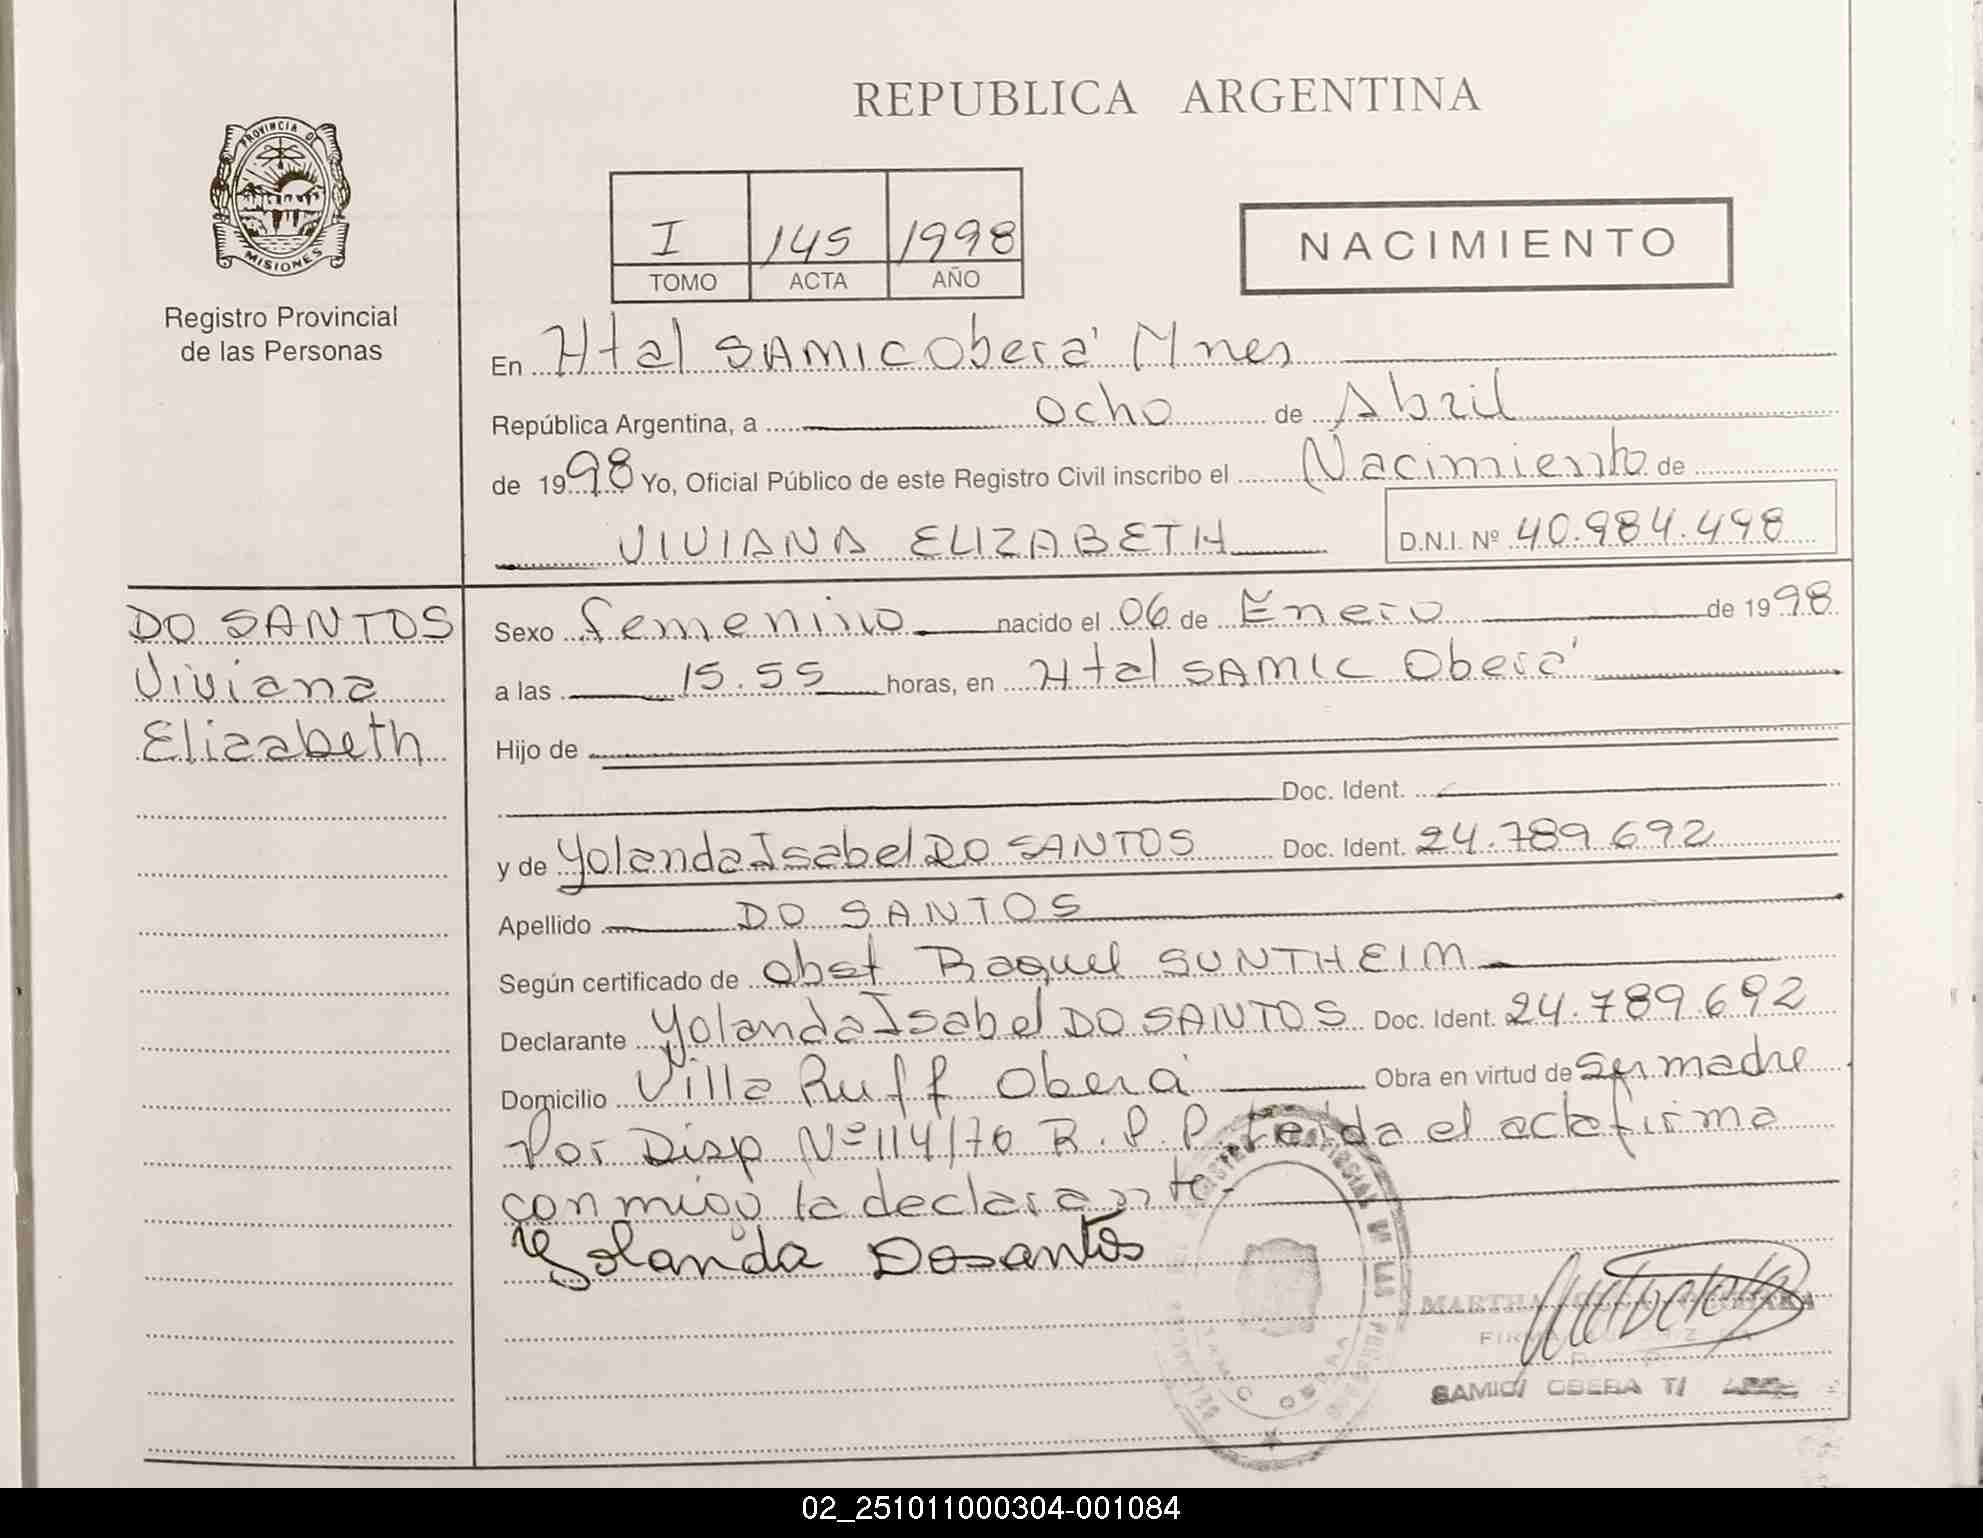 REPUBLICA ARGENTINA
PROVINCIA DE
MISIONES
Registro Provincial
de las Personas
I 145 1998
TOMO ACTA AÑO
NACIMIENTO
En Htal SAMIC Oberá Mnes
República Argentina, a ocho de Abril
de 1998 Yo, Oficial Público de este Registro Civil inscribo el Nacimiento de
VIVIANA ELIZABETH D.N.I. Nº 40.984.498
DO SANTOS
Viviana
Elizabeth
Sexo femenino nacido el 06 de Enero de 1998
a las 15.55 horas, en Htal SAMIC Oberá
Hijo de
Doc. Ident.
y de Yolanda Isabel DO SANTOS Doc. Ident. 24.789.692
Apellido DO SANTOS
Según certificado de obst Raquel SUNTHEIM
Declarante Yolanda Isabel DO SANTOS Doc. Ident. 24.789.692
Domicilio Villa Ruff Oberá Obra en virtud de ser madre
Por Disp Nº 114/70 R.P.P. leida el acta firma
conmigo la declarante
Yolanda Dosantos
MARTHA
SAMIC/ OBERA
02_251011000304-001084